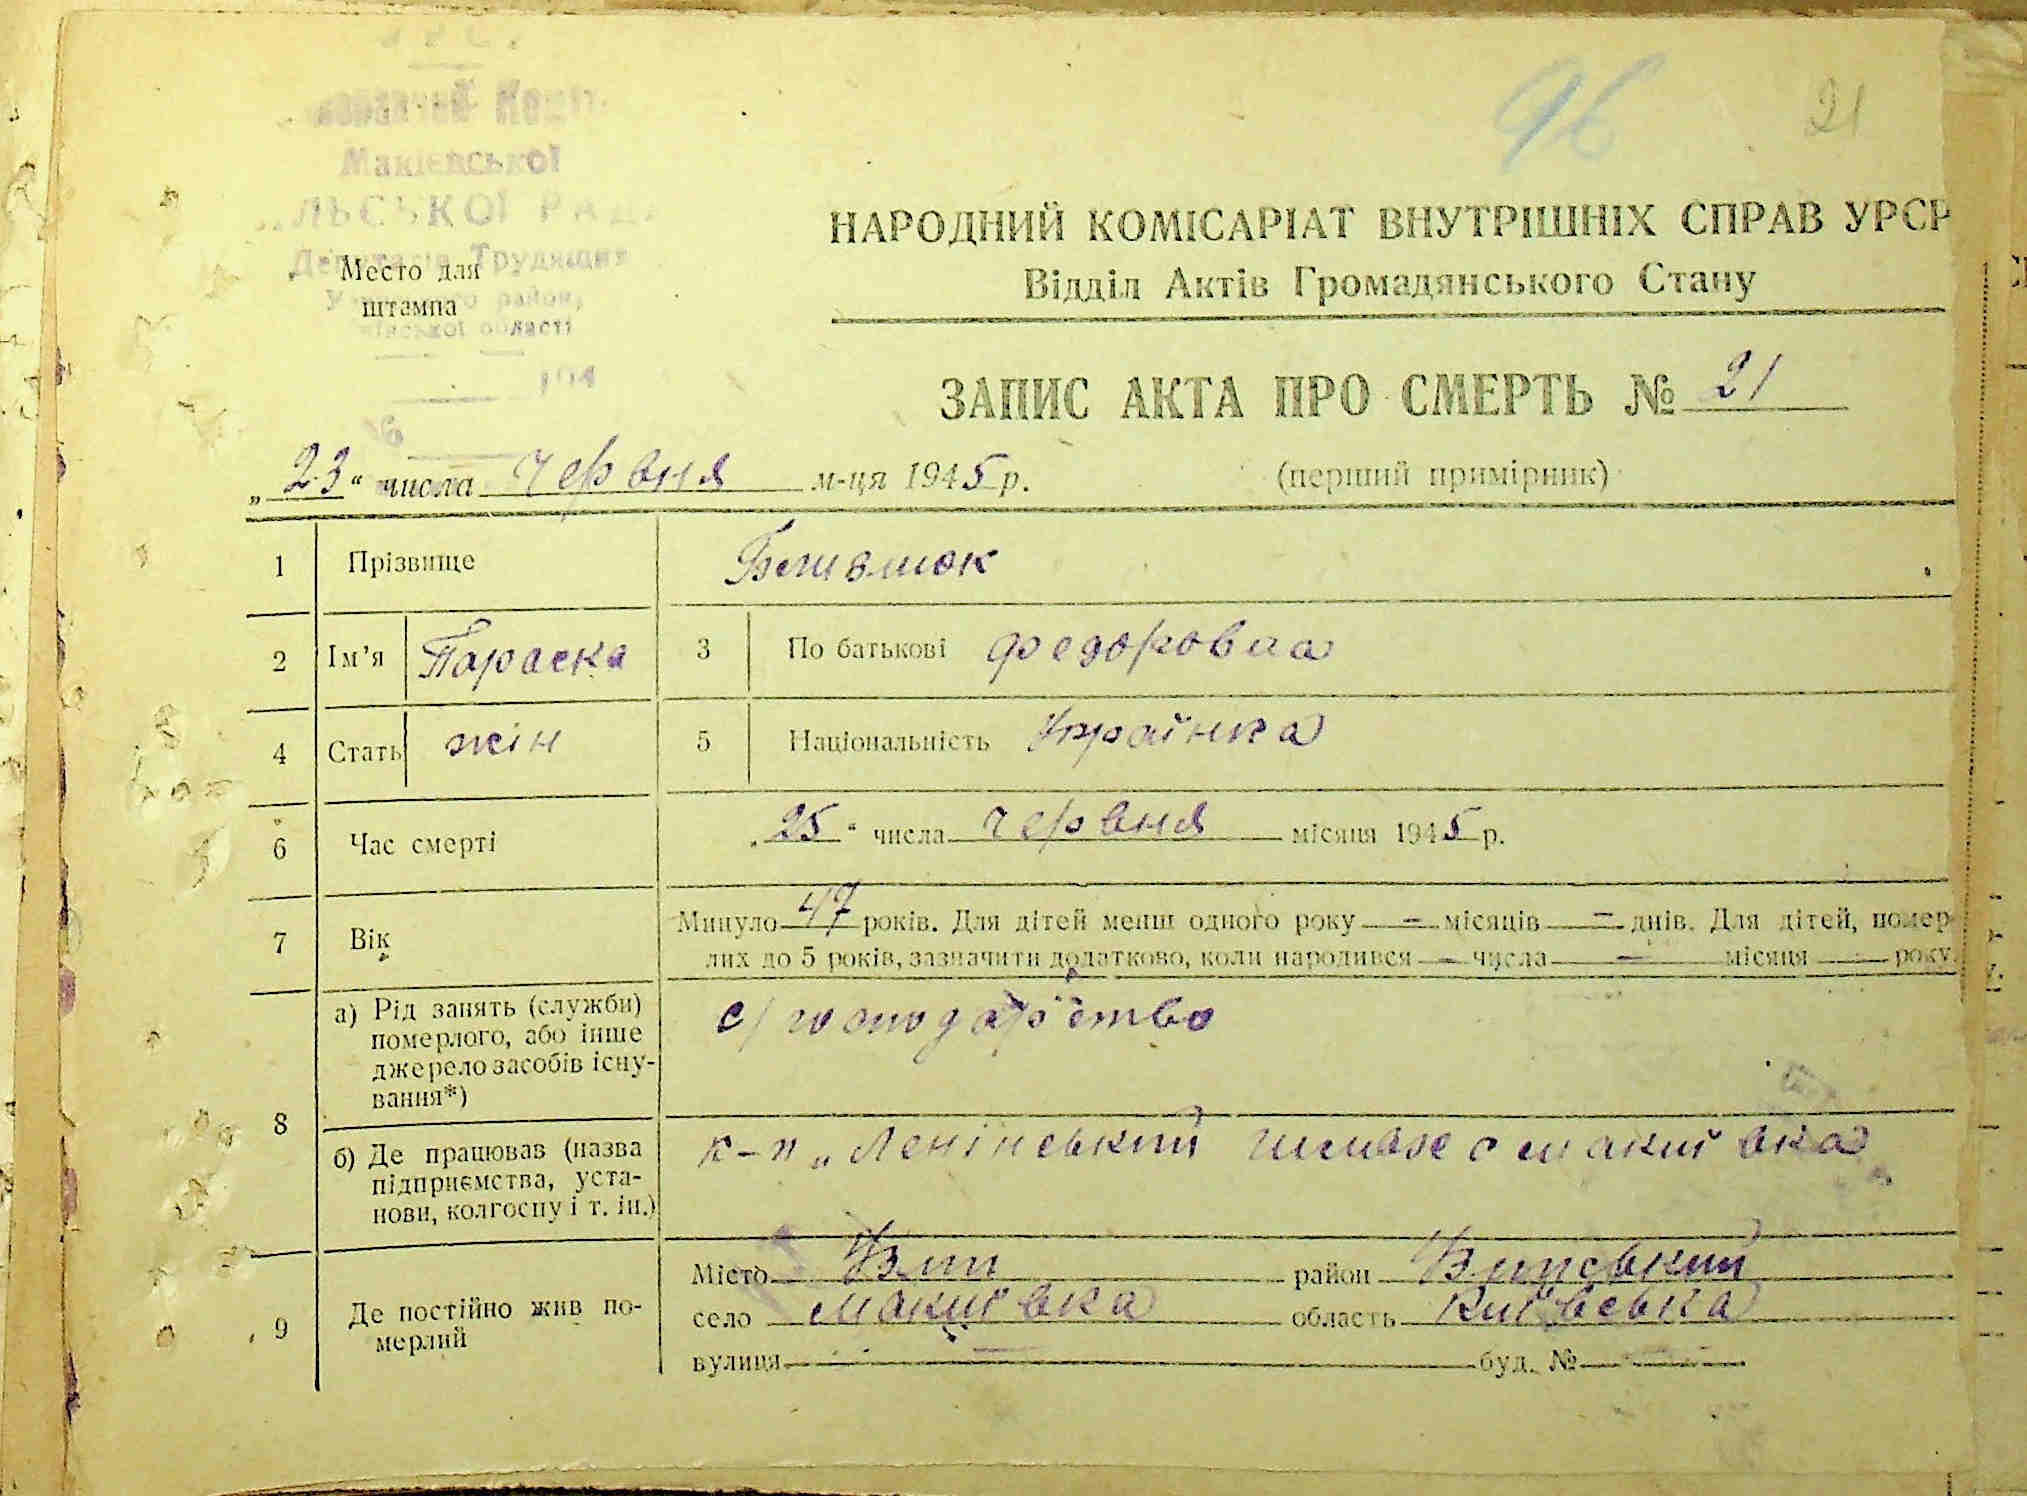 96
21
Макіевської
Место для
штампа
НАРОДНИЙ КОМІСАРІАТ ВНУТРІШНІХ СПРАВ УРСР
Відділ Актів Громадянського Стану
ЗАПИС АКТА ПРО СМЕРТЬ № 21
„23“ числа червня м-ця 1945 р. (перший примірник)
1 Прізвище
2 Ім’я Параска 3 По батькові Федоровна
4 Стать жін 5 Національність Українка
6 Час смерті „25“ числа червня місяця 1945 р.
7 Вік Минуло 47 років. Для дітей менш одного року — місяців — днів. Для дітей, помер-
лих до 5 років, зазначити додатково, коли народився — числа — місяця — року.
8 а) Рід занять (служби) померлого, або інше джерело засобів існу-вання*) с/господарство
б) Де працював (назва підприємства, уста-нови, колгоспу і т. ін.) к-п „Ленінський шлях с Макиївка
9 Де постійно жив по-мерлий
Місто Узин район Узинський
село Макиївка область Київська
вулиця — буд. № —